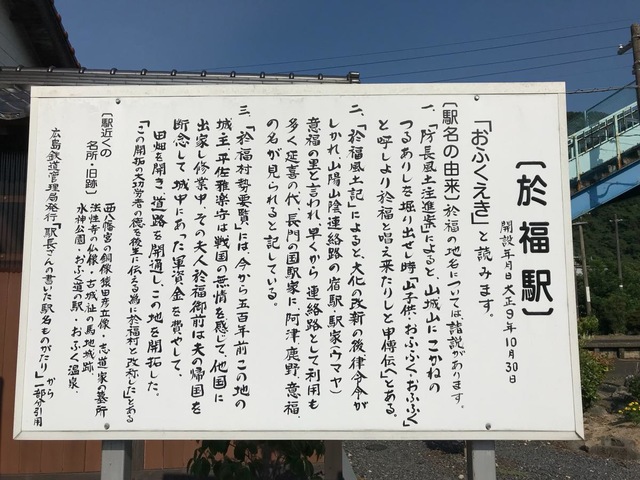 〔於福駅〕
開設年月日 大正9年10月30日
「おふくえき」と読みます。
〔駅名の由来〕於福の地名については、諸説があります。
一、「防長風土注進案」によると、山城山にこがねの
つるありしを堀り出せし時、「山子供、おふふく、おふふく」
と呼しより於福と唱え来たりしと申傳へ」とある。
二、「於福風土記」によると、大化の改新の後、律令令が
しかれ、山陽山陰連絡路の宿駅、駅家(ウマヤ)
意福の里と言われ、早くから連絡路として利用も
多く、延喜の代、長門の国駅家に、阿津、鹿野、意福、
の名が見られると記している。
三、「於福村勢要覧」には、今から五百年前この地の
城主、平佐雅楽守は戦国の無情を感じて、他国に
出家し修業中、その夫人於福御前は夫の帰国を
断念して、城中にあった軍資金を費やして、
田畑を開き、道路を開通し、この地を開拓した。
「この開拓の大功労者の徳を後生に伝える為に於福村と改称した」とある
〔駅近くの
名所・旧跡〕
西八幡宮の銅像猿田彦立像・志道家の墓所
法性寺の仏像・古城祉の馬地城跡、
水神公園・おふく道の駅・おふく温泉、
広島鉄道管理局発行「駅長さんの書いた駅名ものがたり」から
一部分引用